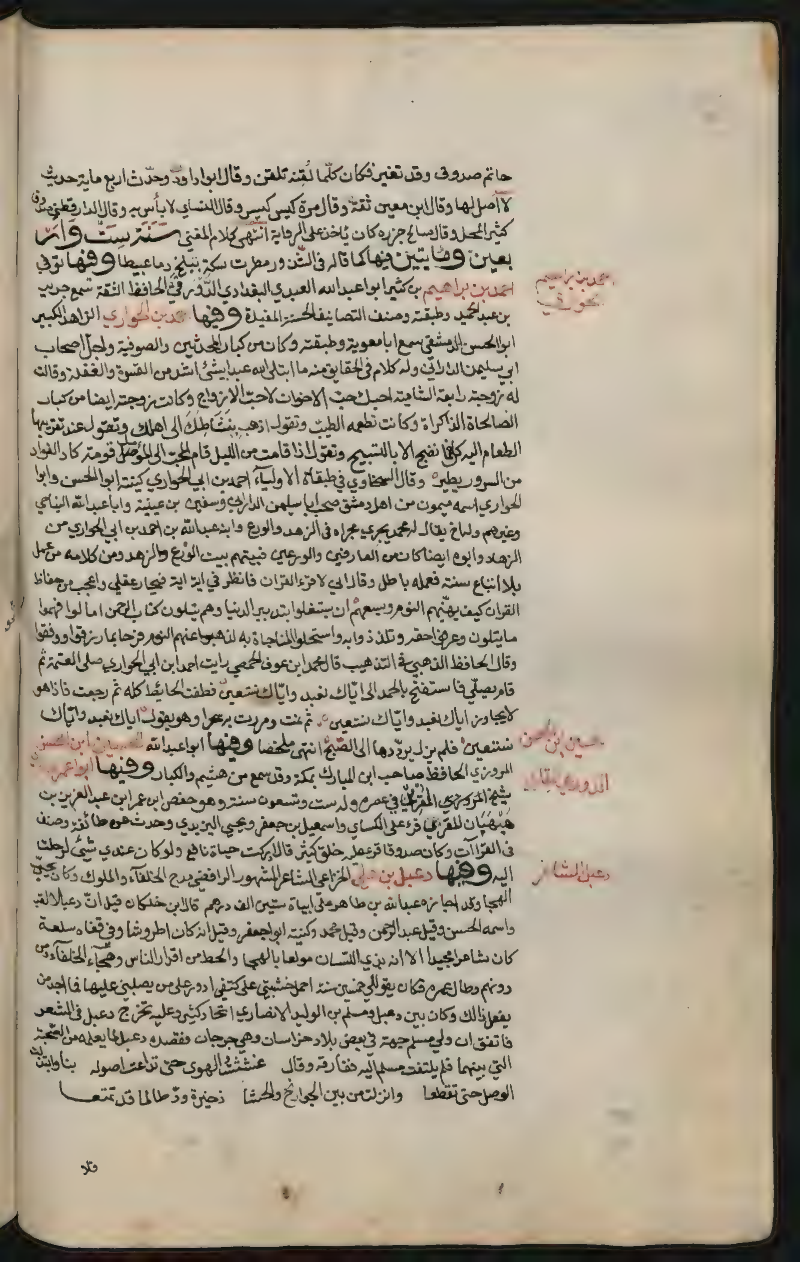 حاتم صدوق وقد تغير فكان كلما لُقنه تلقن وقال ابو داود وحدث اربع ماية حديث
لا اصل لها وقال ابن معين ثقة وقال مرة كيس كيس وقال النساي لا بأس به وقال الدارقطني صدوق
كثير المحل وقال صالح جزره كان ياخذ على الرواية انتهى كلام المغني سنة ست وار
بعين ومايتين فيها كما قاله في الشذور مطرت سكة ببلخ دما عبيطا وفيها توفي
احمد بن براهيم بن كثير ابو عبد الله العبدي البغدادي الدورقي الحافظ الثقة سمع جرير
بن عبد الحميد وطبقته وصنف التصانيف الحسنة المفيدة وفيها احمد بن الحواري الزاهد الكبير
ابو الحسن الدمشقي سمع ابا معوية وطبقته وكان من كبار المحدثين والصوفية واجل اصحاب
ابي سليمن الداراني وله كلام في الحقايق منه ما ابتلى الله عبدا بشئ اشد من القسوة والغفلة وقالت
له زوجته رابعة الشامية احبك حب الاخوان لا حب الازواج وكانت زوجته ايضا من كبار
الصالحاة الذاكراة وكانت تطعمه الطيب وتقول اذهب بنشاطك الى اهلك وتقول عند تقريبها
الطعام اليه كل فما نضج الا بالتسبيح وتقول اذا قامت من الليل قام المحب الى المؤمل قومة كاد الفواد
من السرور يطير وقال السخاوي في طبقاة الاولياء احمد بن ابي الحواري كنيته ابو الحسن وابو
الحواري اسمه ميمون من اهل دمشق صحب ابا سليمن الداراني وسفين بن عيينة وابا عبد الله النباجي
وغيرهم وله اخ يقال له محمد يجري مجراه في الزهد والورع وابنه عبد الله بن احمد بن ابي الحواري من
الزهاد وابوه ايضا كان من العارفين والورعين فبيتهم بيت الورع والزهد ومن كلامه من عمل
بلا اتباع سنة فعمله باطل وقال اني لاقرء القران فانظر في اية اية فيحار عقلي واعجب من حفاظ
القران كيف يهنيهم النوم ويسعهم ان يستغلوا بتدبير الدنيا وهم يتلون كتاب الرحمن اما لو فهموا
ما يتلون وعرفوا حقه وتلذذوا به واستحلوا المناجاة به لذهبوا عنهم النوم فرحا بما رزقوا ووفقوا
وقال الحافظ الذهبي في التذهيب قال محمد ابن عوف الحمصي رايت احمد ابن ابي الحواري صلى العتمة ثم
قام يصلي فاستفتح بالحمد الى اياك نعبد واياك نستعين فطفت الحايط كله ثم رجعت فاذا هو
لا يجاوز اياك نعبد واياك نستعين ثم نمت ومررت به سحرا وهو يقول اياك نعبد واياك
نستعين فلم يزل يرددها الى الصبح انتهى ملخصا وفيها ابو عبد الله الحسين ابن الحسن
المروزي الحافظ صاحب ابن المبارك بمكة وقد سمع من هشيم والكبار وفيها ابو عمر
شيخ المقرئين في عصره وله ست وتسعون سنة وهو حفص ابن عمر ابن عبد العزيز بن
صهبان المقرئ قرء على الكساي واسمعيل بن جعفر ويحيى اليزيدي وحدث عن طائفة وصنف
في القراات وكان صدوقا قرء عليه خلق كثير قال ادركت حياة نافع ولو كان عندي شيئ لرحلت
اليه وفيها دعبل بن علي الخزاعي الشاعر المشهور الرافضي مدح الخلفاء والملوك وكان يحب
الهجا وقد اجازه عبد الله بن طاهر على ابياة ستين الف درهم قال ابن خلكان قيل ان دعبلا لقب
واسمه الحسن وقيل عبد الرحمن وقيل محمد وكنيته ابو جعفر وقيل انه كان اطروشا وفي قفاه سلعة
كان شاعرا مجيدا الا انه بذي اللسان مولعا بالهجا والحط من اقدار الناس وهجاء الخلفاء ومن
دونهم وطال عمره فكان يقول لي خمسين سنة احمل خشبتي على كتفي ادور على من يصلبني عليها فما اجد من
يفعل ذالك وكان بين دعبل ومسلم بن الوليد الانصاري اتحاد كثير وعليه تخرج دعبل في الشعر
فاتفق ان ولي مسلم جهة في بعض بلاد خراسان وهي جرجان فقصده دعبل لما يعلمه من الصحبة
التي بينهما فلم يلتفت مسلم اليه ففارقه وقال غششت الهوى حتى تداعت اصوله بنا وابتذلت
الوصل حتى تقطعا وانزلت من بين الجوانح والحشا ذخيرة ود طالما قد تمتعا
وقلا
احمد بن ابراهيم
الدورقي
حسين ابن الحسن
الدوري المقري
دعبل الشاعر